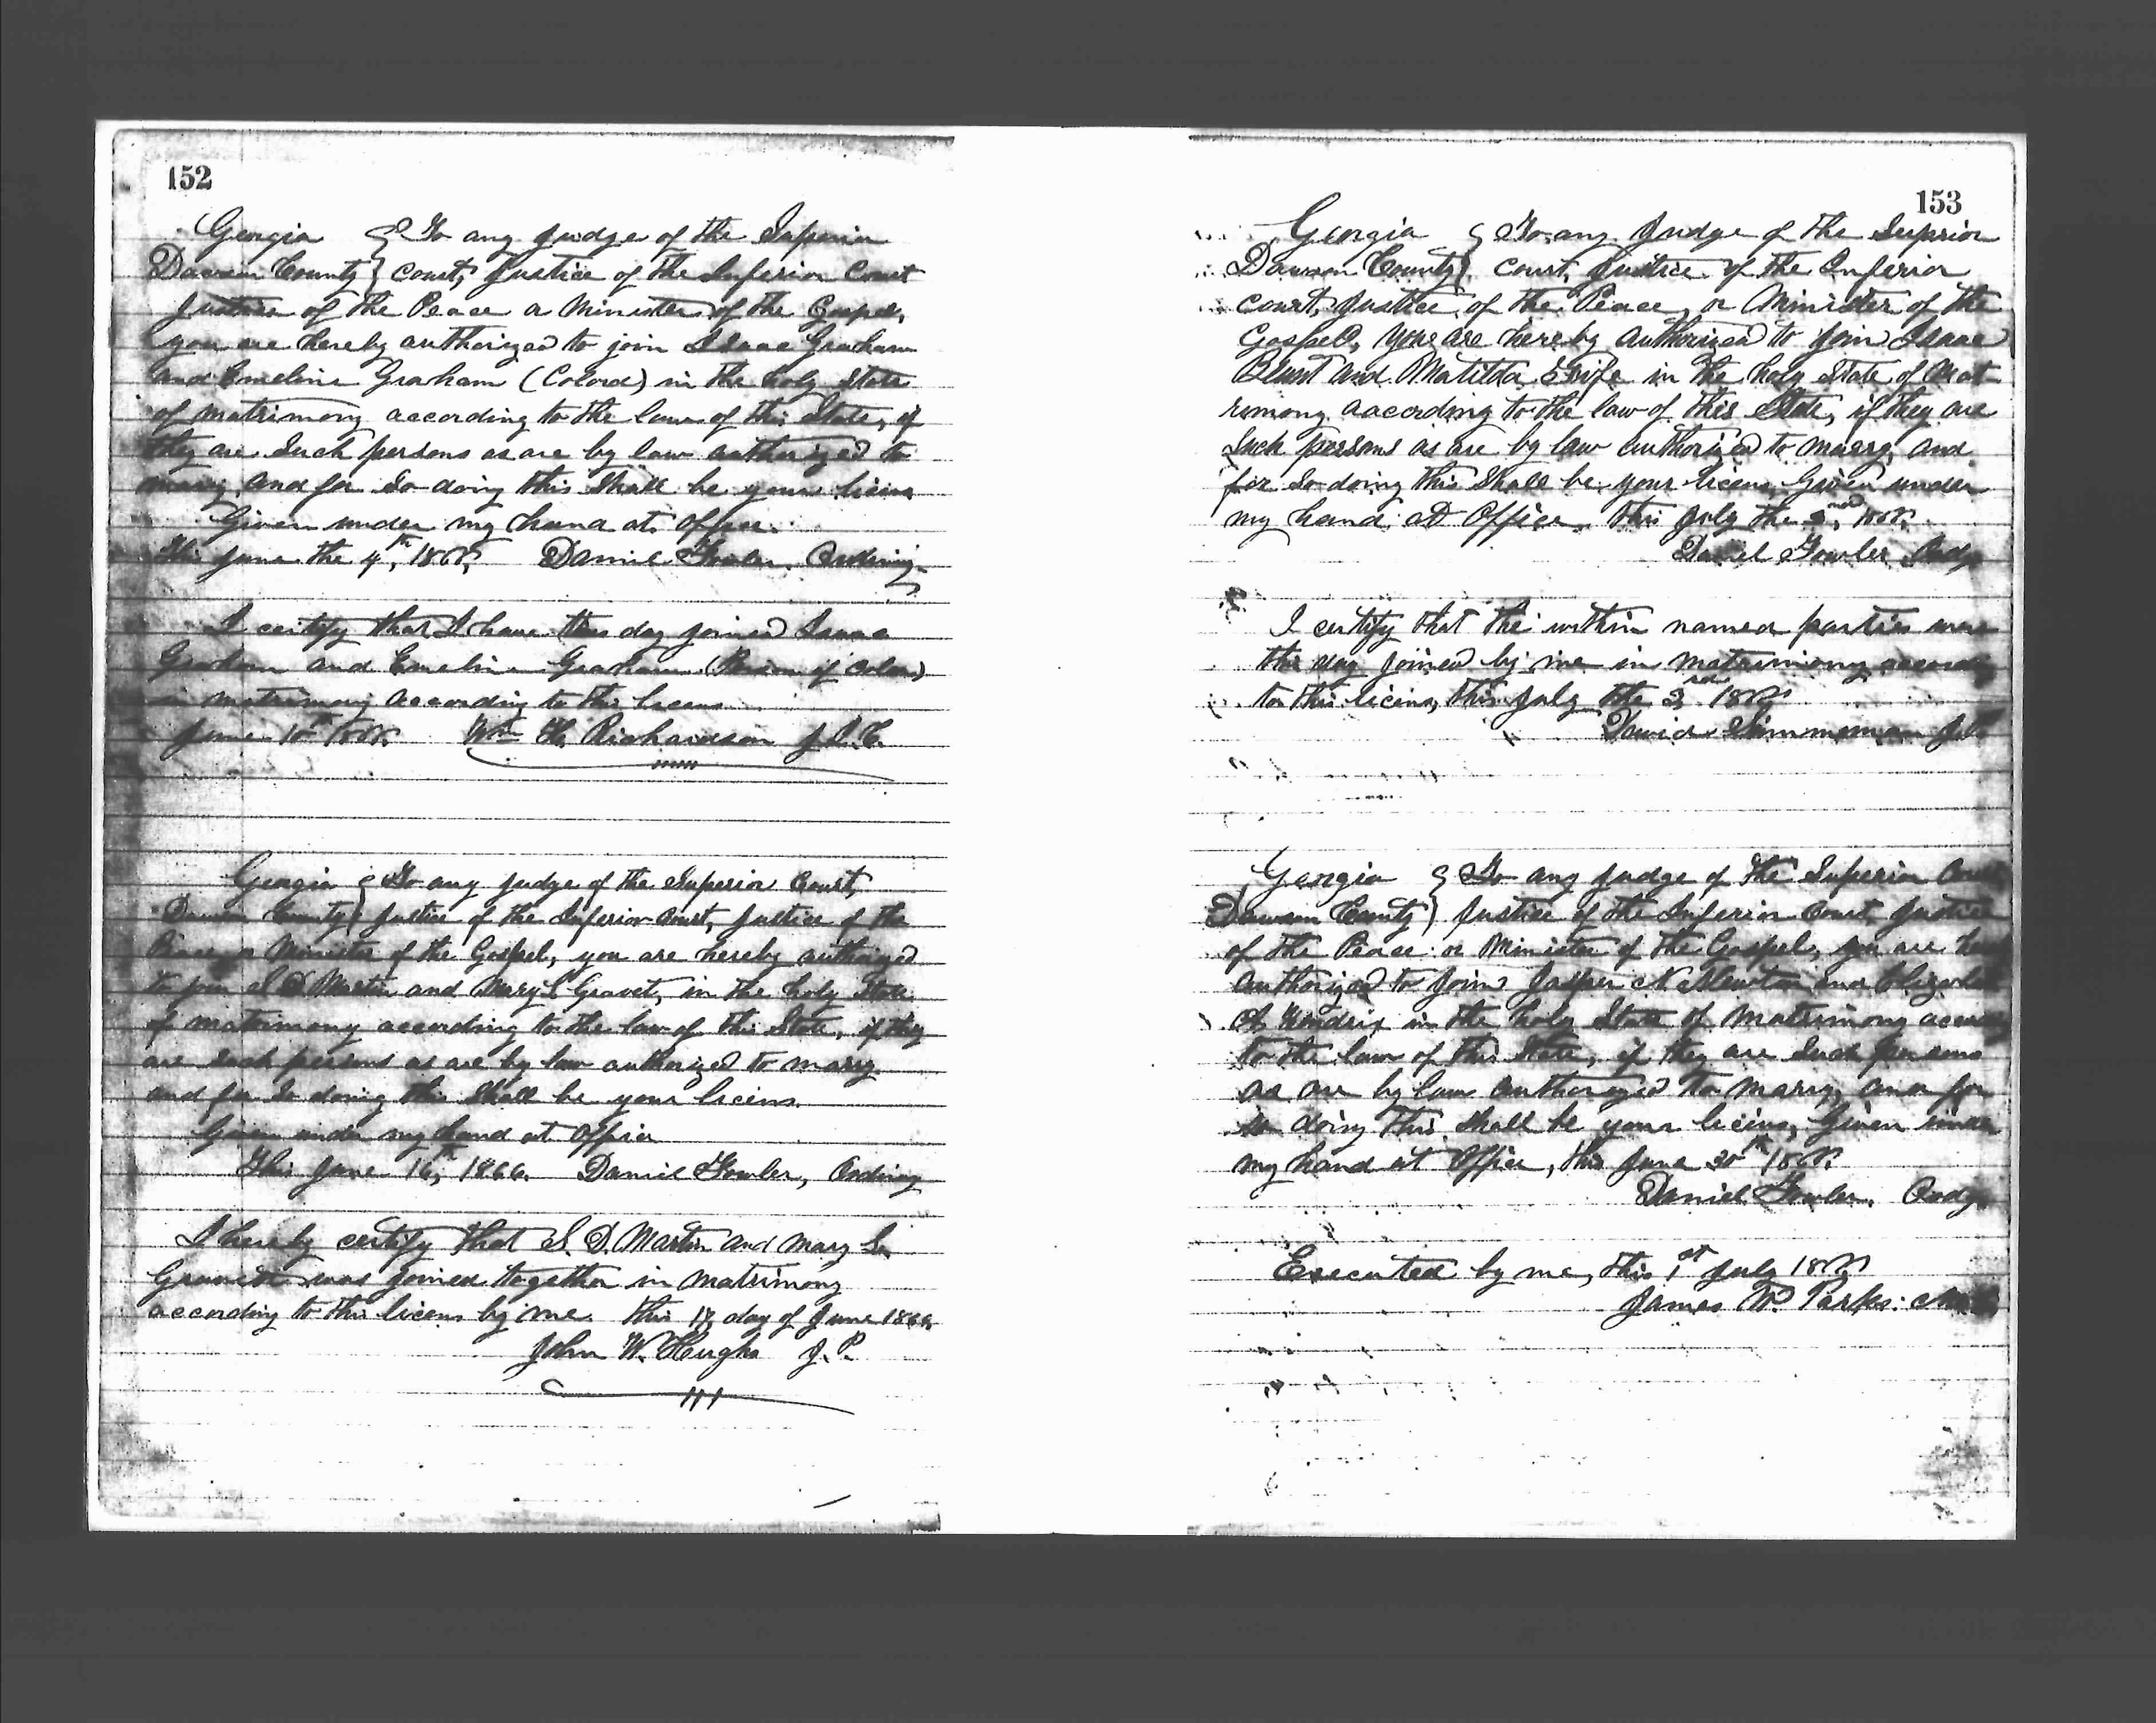 152
Georgia } To any Judge of the Superior
Dawson County } Court, Justice of the Inferior Court
Justice of the Peace or Minister of the Gospel,
you are hereby authorized to join Isaac Graham
and Emeline Graham (Colord) in the holy State
of matrimony according to the laws of this State, if
they are Such persons as are by law authorized to
marry, and for So doing this Shall be your licens
Given under my hand at office.
This June the 4th, 1866, Daniel Fowler, Ordinary
I certify that I have this day joined Isaac
Graham and Emeline Graham (Person of Color)
in matrimony according to this licens
June 10th 1866. Wm H. Richardson J.I.C.
Georgia } To any Judge of the Superior Court,
Dawson County } Justice of the Inferior Court, Justice of the
Peace or Minister of the Gospel, you are hereby authorized
to join S D Martin and Mary L Gravet, in the holy State
of matrimony according to the law of this State, if they
are Such persons as are by law authorized to marry
and for So doing this Shall be your licens.
Given under my hand at office
This June 16th, 1866. Daniel Fowler, Ordinary
I hereby certify that S. D. Martin and Mary
was joined together in matrimony
according to this licens by me. this 17, day of June 1866.
John W. Hughs J. P.
153
Georgia } To any Judge of the Superior
Dawson County } Court, Justice of the Inferior
court, Justice of the Peace, or Minister of the
Gospel, you are here by authorized to join Isaac
and Matilda in the holy State of Mat
rimony according to the law of this State, if they are
Such persons as are by law authorized to marry, and
for So doing this Shall be your licens, Given under
my hand at Office. this July the 1866.
Daniel Fowler Ordy
I certify that the within named parties were
this day joined by me in matrimony
to this licens, this July the 3rd 1866
David J.P.
Georgia } To any Judge of the Superior Court
Dawson County } Justice of the Inferior Court, Justice
of the Peace or Minister of the Gospel, you are
authorized to join Jasper N Newton and
A Hendrix in the holy State of Matrimony
to the law of this State, if they are Such persons
as are by law authorized to marry, and for
so doing this Shall be your licens, Given under
my hand at Office, this June 30th 1866.
Daniel Fowler. Ordy
Executed by me, this 1st July 1866
James W. Parks.